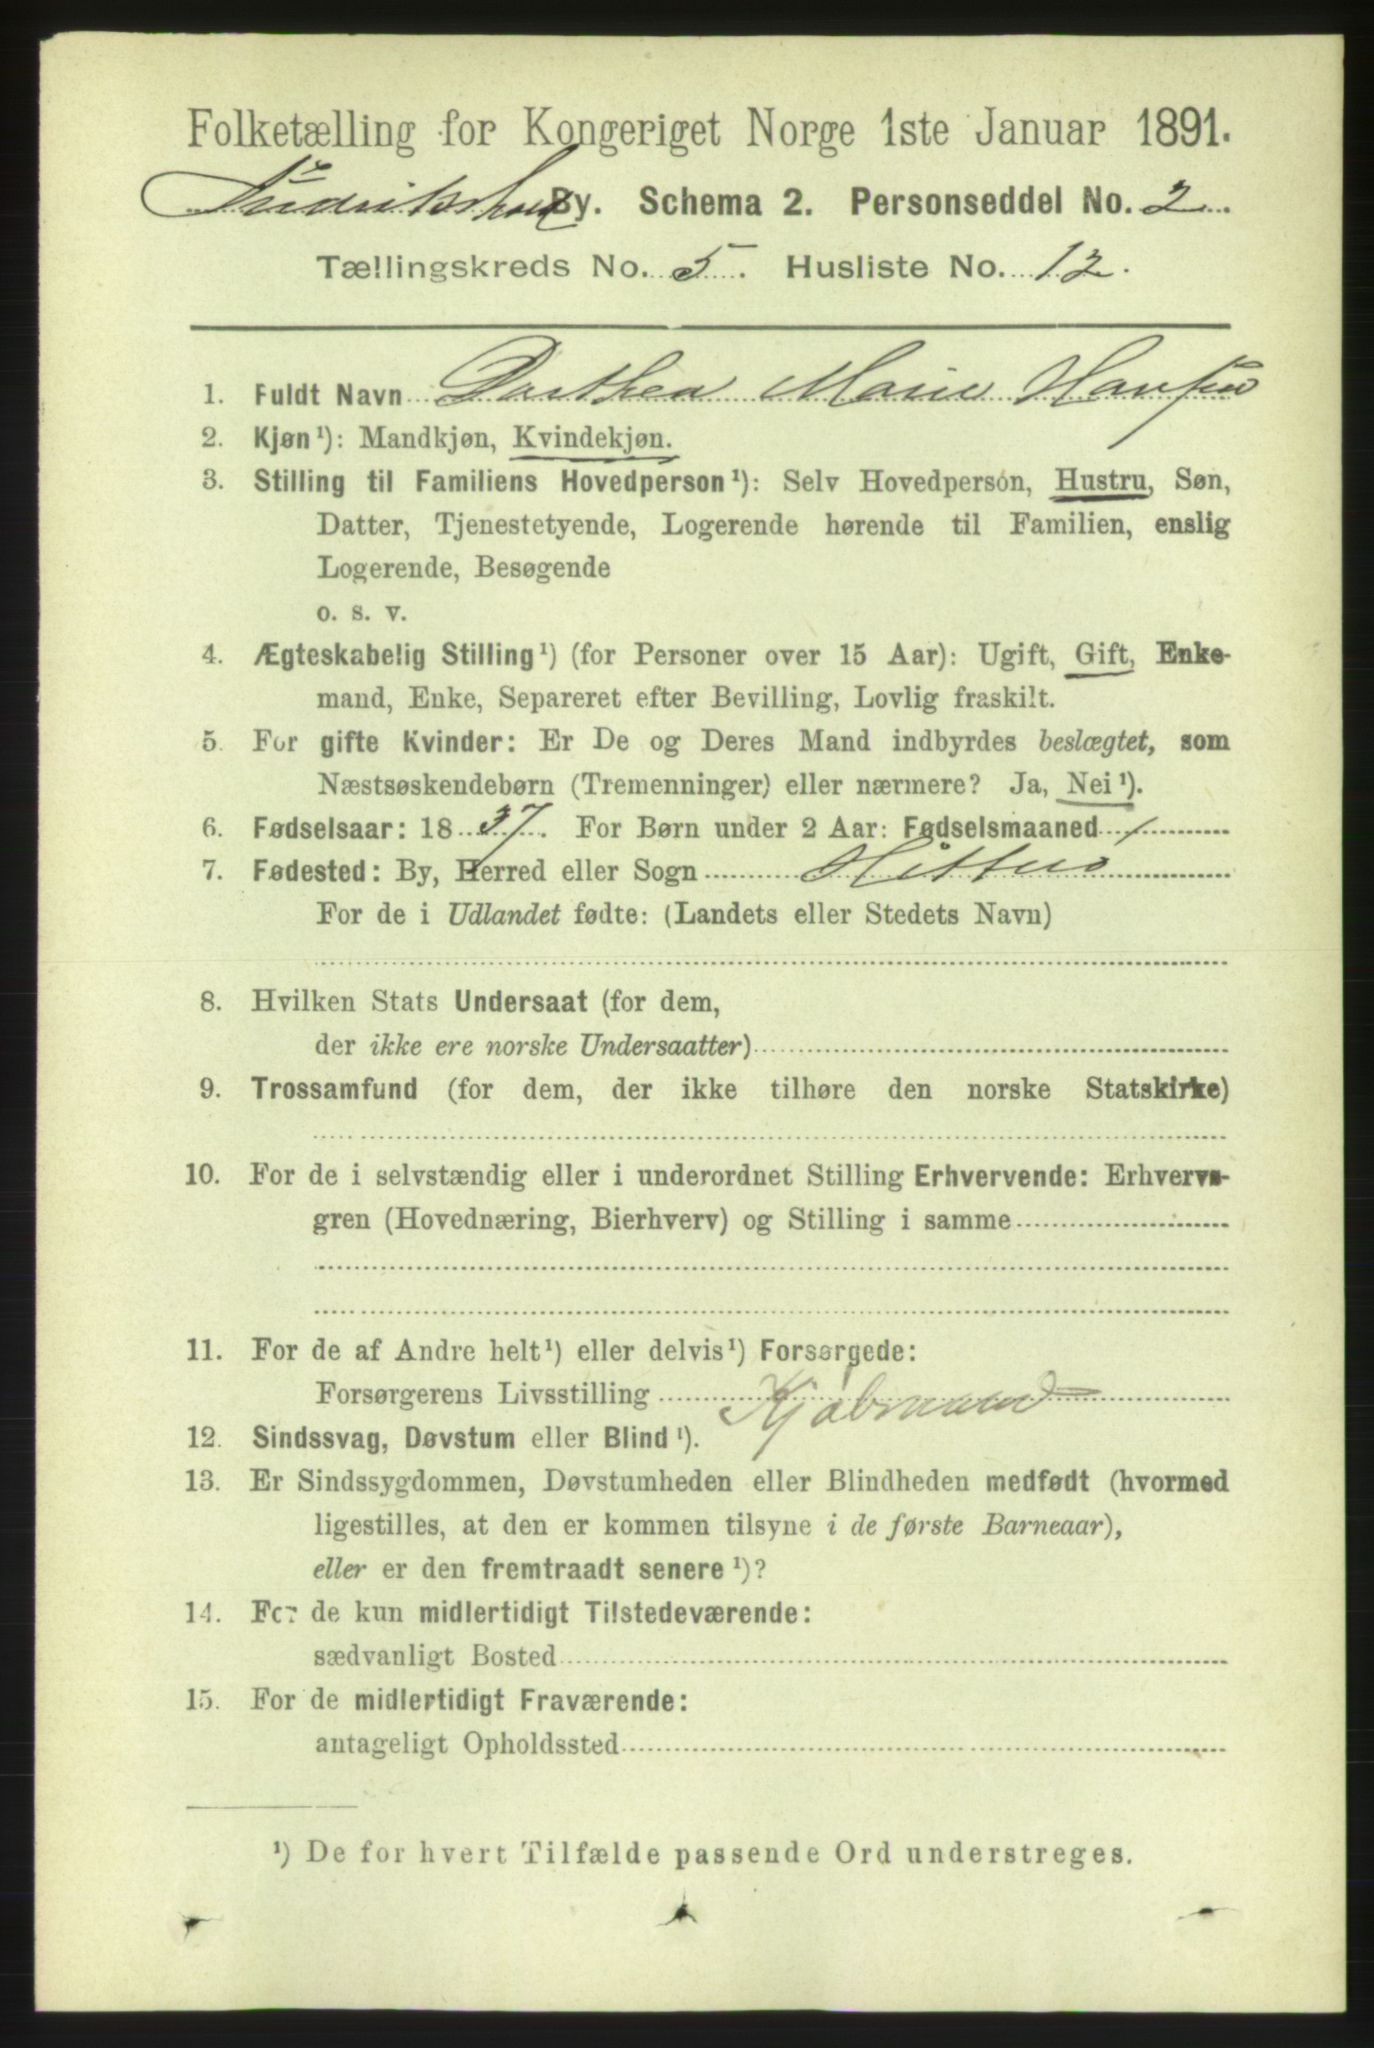 Folketælling for Kongeriget Norge 1ste Januar 1891.
Fredrikshald By. Schema 2. Personseddel No. 2
Tællingskreds No. 5. Husliste No. 12.
1. Fuldt Navn Dorthea Marie Hansen
2. Kjøn¹): Mandkjøn, Kvindekjøn.
3. Stilling til Familiens Hovedperson¹): Selv Hovedperson, Hustru, Søn,
Datter, Tjenestetyende, Logerende hørende til Familien, enslig
Logerende, Besøgende
o. s. v.
4. Ægteskabelig Stilling¹) (for Personer over 15 Aar): Ugift, Gift, Enke-
mand, Enke, Separeret efter Bevilling, Lovlig fraskilt.
5. For gifte Kvinder: Er De og Deres Mand indbyrdes beslægtet, som
Næstsøskendebørn (Tremenninger) eller nærmere? Ja, Nei¹).
6. Fødselsaar: 1837. For Børn under 2 Aar: Fødselsmaaned /
7. Fødested: By, Herred eller Sogn
For de i Udlandet fødte: (Landets eller Stedets Navn)
8. Hvilken Stats Undersaat (for dem,
der ikke ere norske Undersaatter)
9. Trossamfund (for dem, der ikke tilhøre den norske Statskirke)
10. For de i selvstændig eller i underordnet Stilling Erhvervende: Erhvervs-
gren (Hovednæring, Bierhverv) og Stilling i samme
11. For de af Andre helt¹) eller delvis¹) Forsørgede:
Forsørgerens Livsstilling Kjøbmand
12. Sindssvag, Døvstum eller Blind¹).
13. Er Sindssygdommen, Døvstumheden eller Blindheden medfødt (hvormed
ligestilles, at den er kommen tilsyne i de første Barneaar),
eller er den fremtraadt senere¹)?
14. For de kun midlertidigt Tilstedeværende:
sædvanligt Bosted
15. For de midlertidigt Fraværende:
antageligt Opholdssted
¹) De for hvert Tilfælde passende Ord understreges.